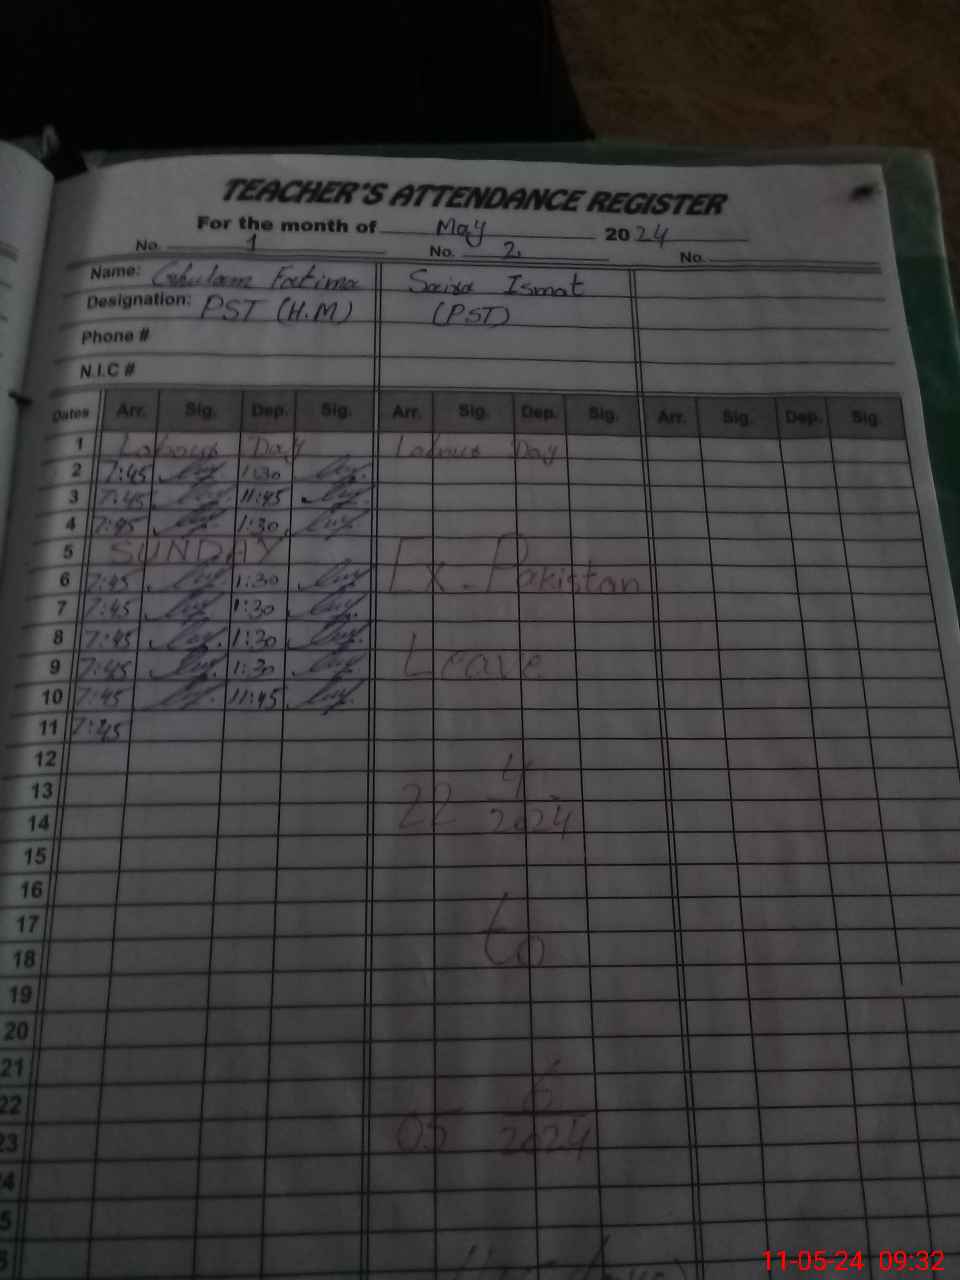 TEACHER'S ATTENDANCE REGISTER
For the month of May 2024
No. 1 No. 2. No.
Name: Ghulam Fatima Saira Ismat
Designation: PST (H.M) (PST)
Phone #
N.I.C #
Dates Arr. Sig. Dep. Sig. Arr. Sig. Dep. Sig. Arr. Sig. Dep. Sig.
1 Labour Day Labour Day
2 7:45 1:30
3 7:45 11:45
4 7:45 1:30
5 SUNDAY
6 7:45 1:30 Ex-Pakistan
7 7:45 1:30
8 7:45 1:30
9 7:45 1:30 Leave
10 7:45 11:45
11 7:45
12
13 22 4
14 2024
15
16
17
18 to
19
20
21
22 6
23 05 2024
11-05-24 09:32